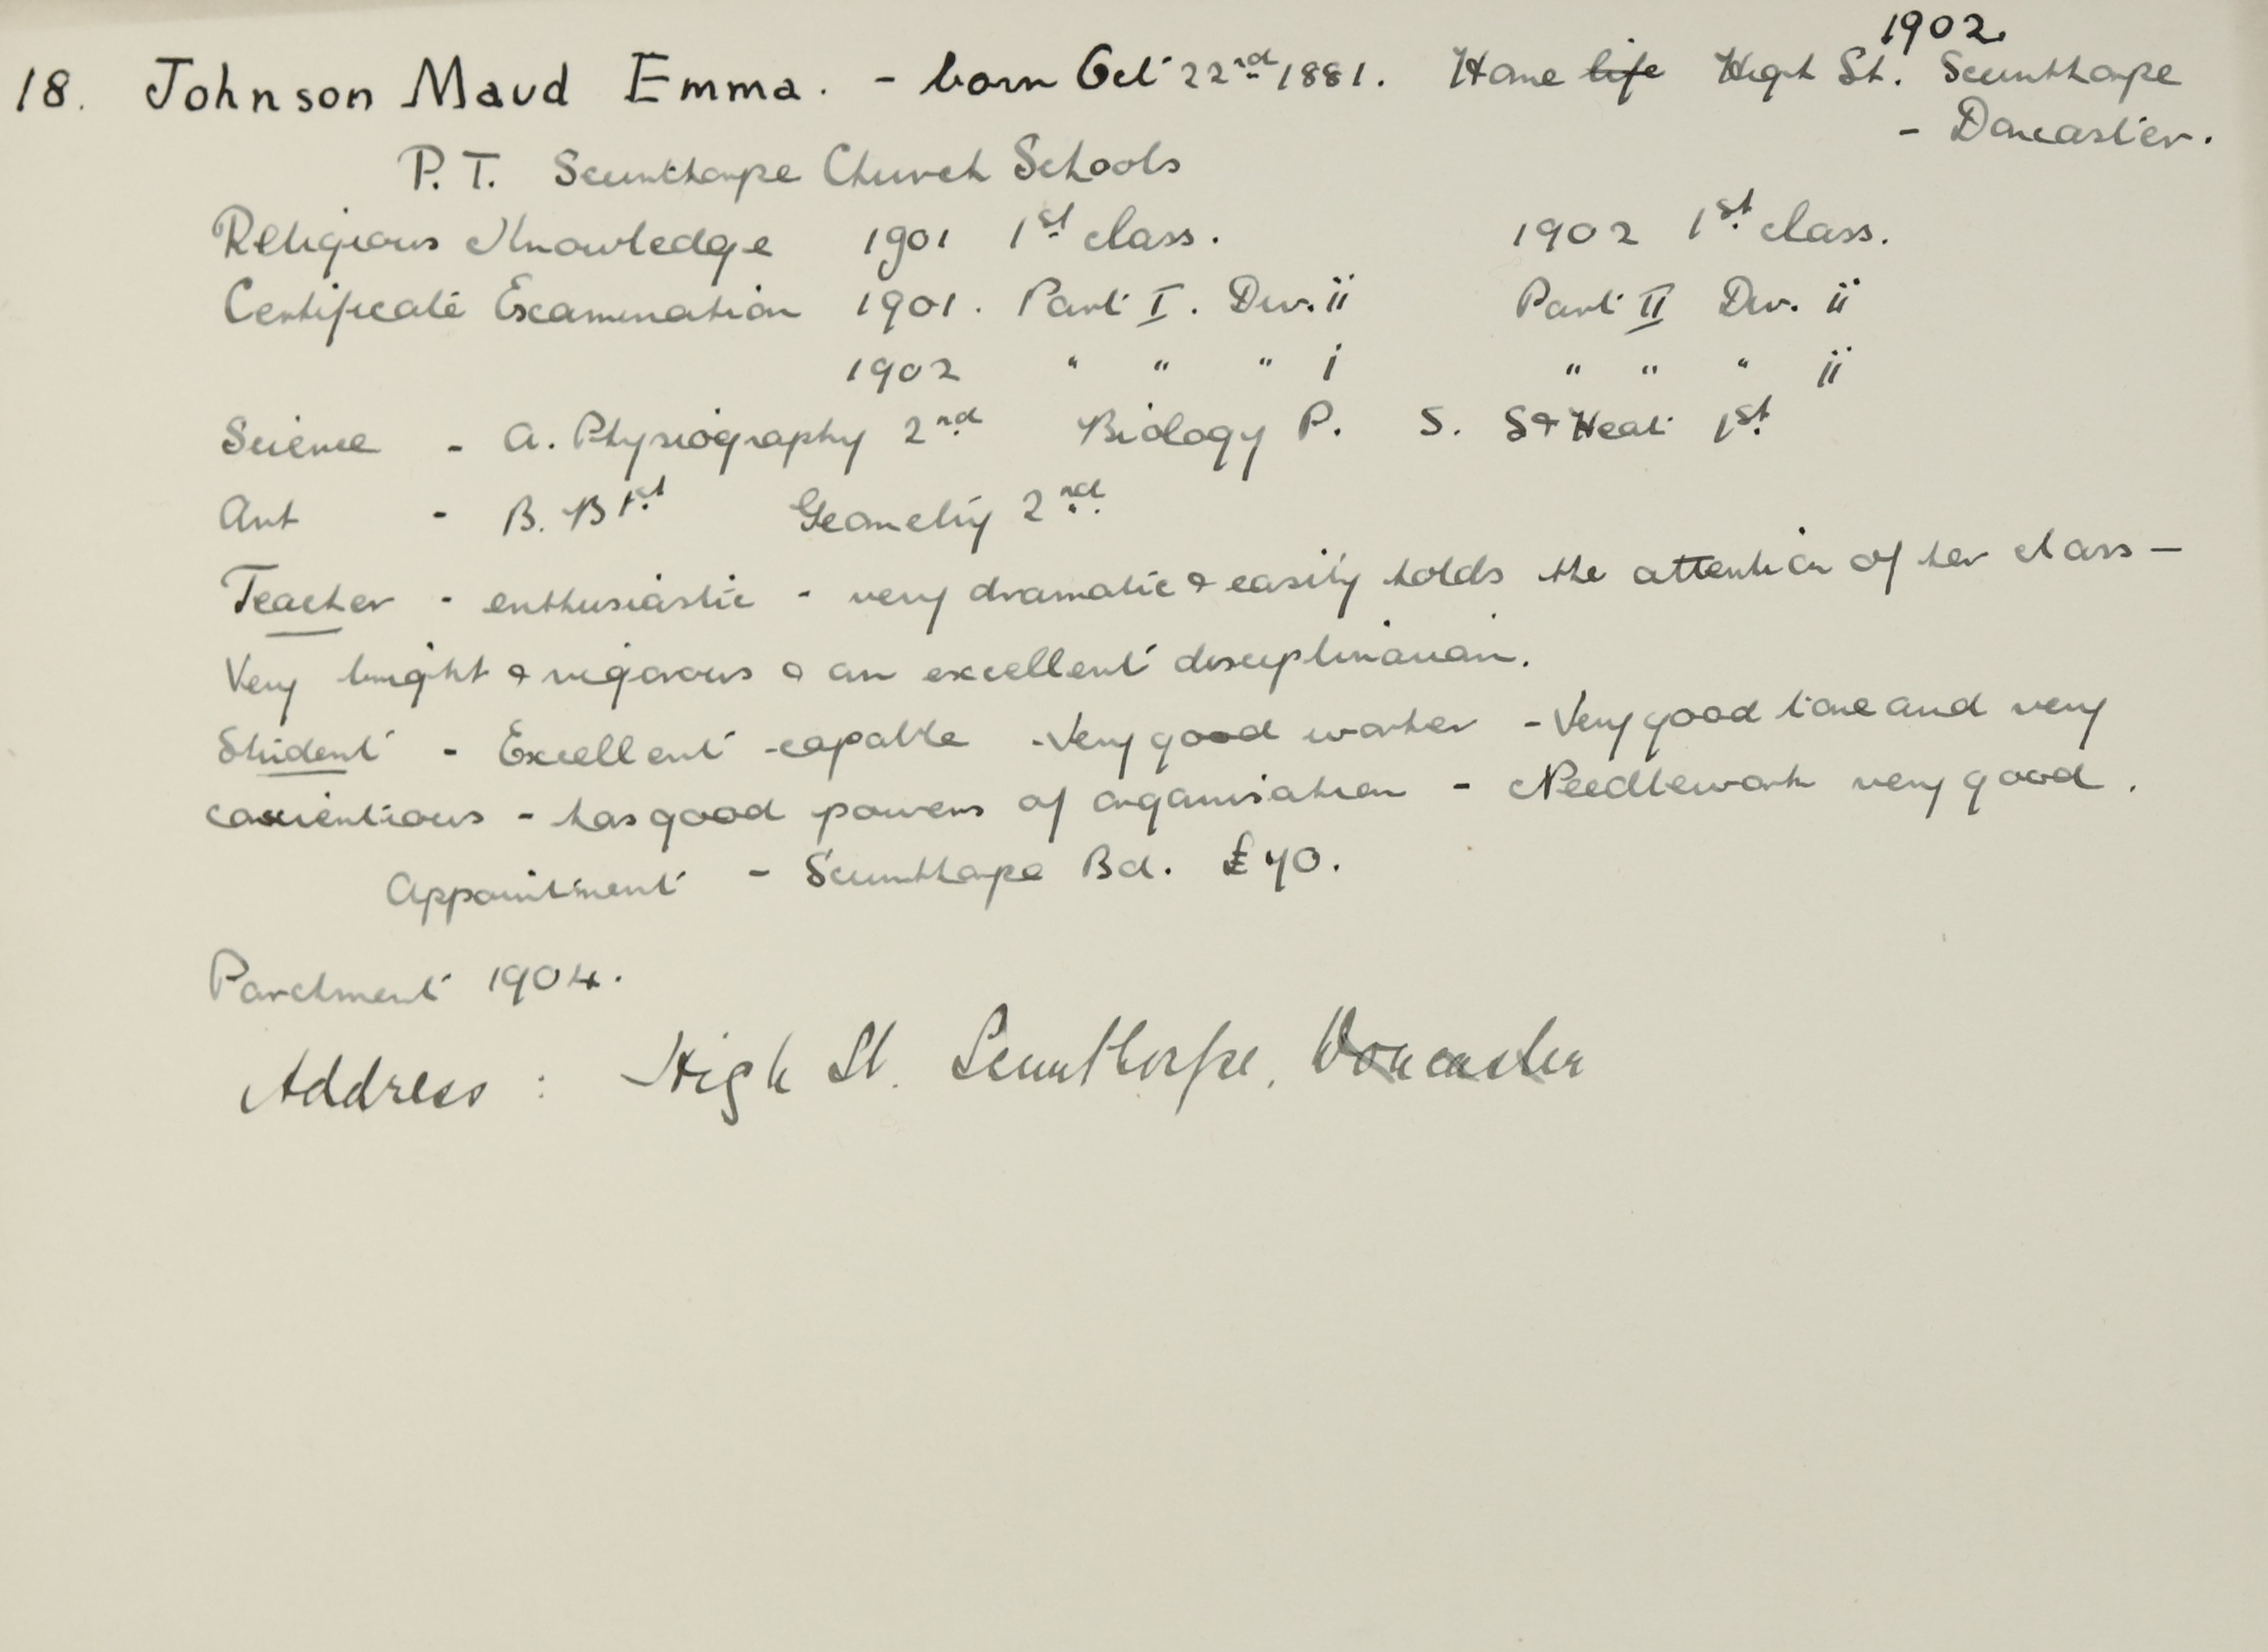 1902.
18. Johnson Maud Emma. - born Oct 22nd 1881. Home life High St. Scunthorpe
- Doncaster.
P.T. Scunthorpe Church Schools
Religious Knowledge 1901 1st class. 1902 1st class.
Certificate Examination 1901. Part I. Div. ii Part II Div. ii
1902 " " " i " " " ii
Science - A. Physiography 2nd Biology P. S. S & Heat 1st
Art - B. B 1st Geometry 2nd
Teacher - enthusiastic - very dramatic & easily holds the attention of her class -
Very bright & vigorous & an excellent disciplinarian.
Student - Excellent - capable - Very good worker - Very good tone and very
conscientious - has good powers of organisation - Needlework very good.
Appointment - Scunthorpe Bd. £70.
Parchment 1904.
Address : High St. Scunthorpe, Doncaster